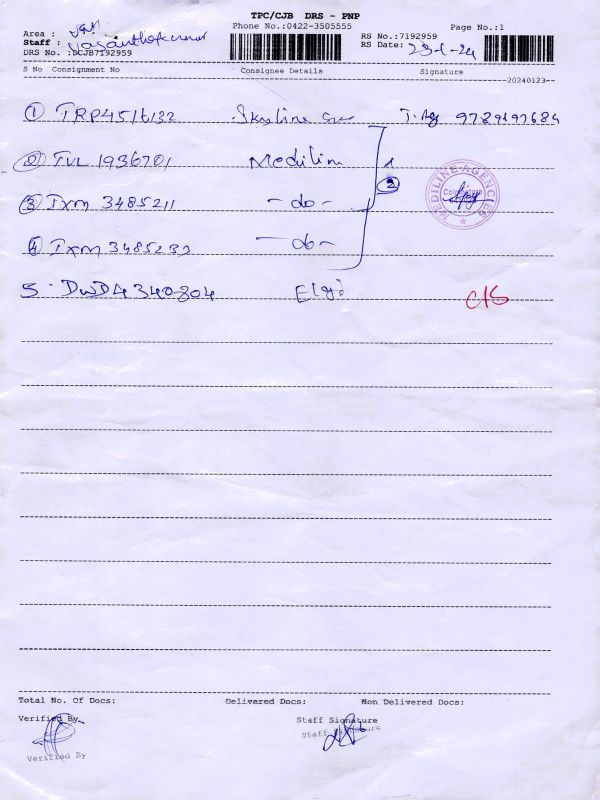 TPC/CJB DRS - PNP
Phone No.:0422-3505555
Page No.:1
Area :
RS No.:7192959
Staff : Vasanthakumar
RS Date: 23-1-24
DRS No. :DCJB7192959
S No Consignment No Consignee Details Signature
20240123
1 TRP4516132 Skyline T. 9789197684
2 TVL 1936701 Mediline
3 IXM 3485211 - do -
2
4 IXM 3485232 - do -
5. DWD4340804 Elgi C/S
MEDILINE AGENCIES
Coimbatore
Total No. Of Docs: Delivered Docs: Non Delivered Docs:
Verified By Staff Signature
Staff Signature
Verified By